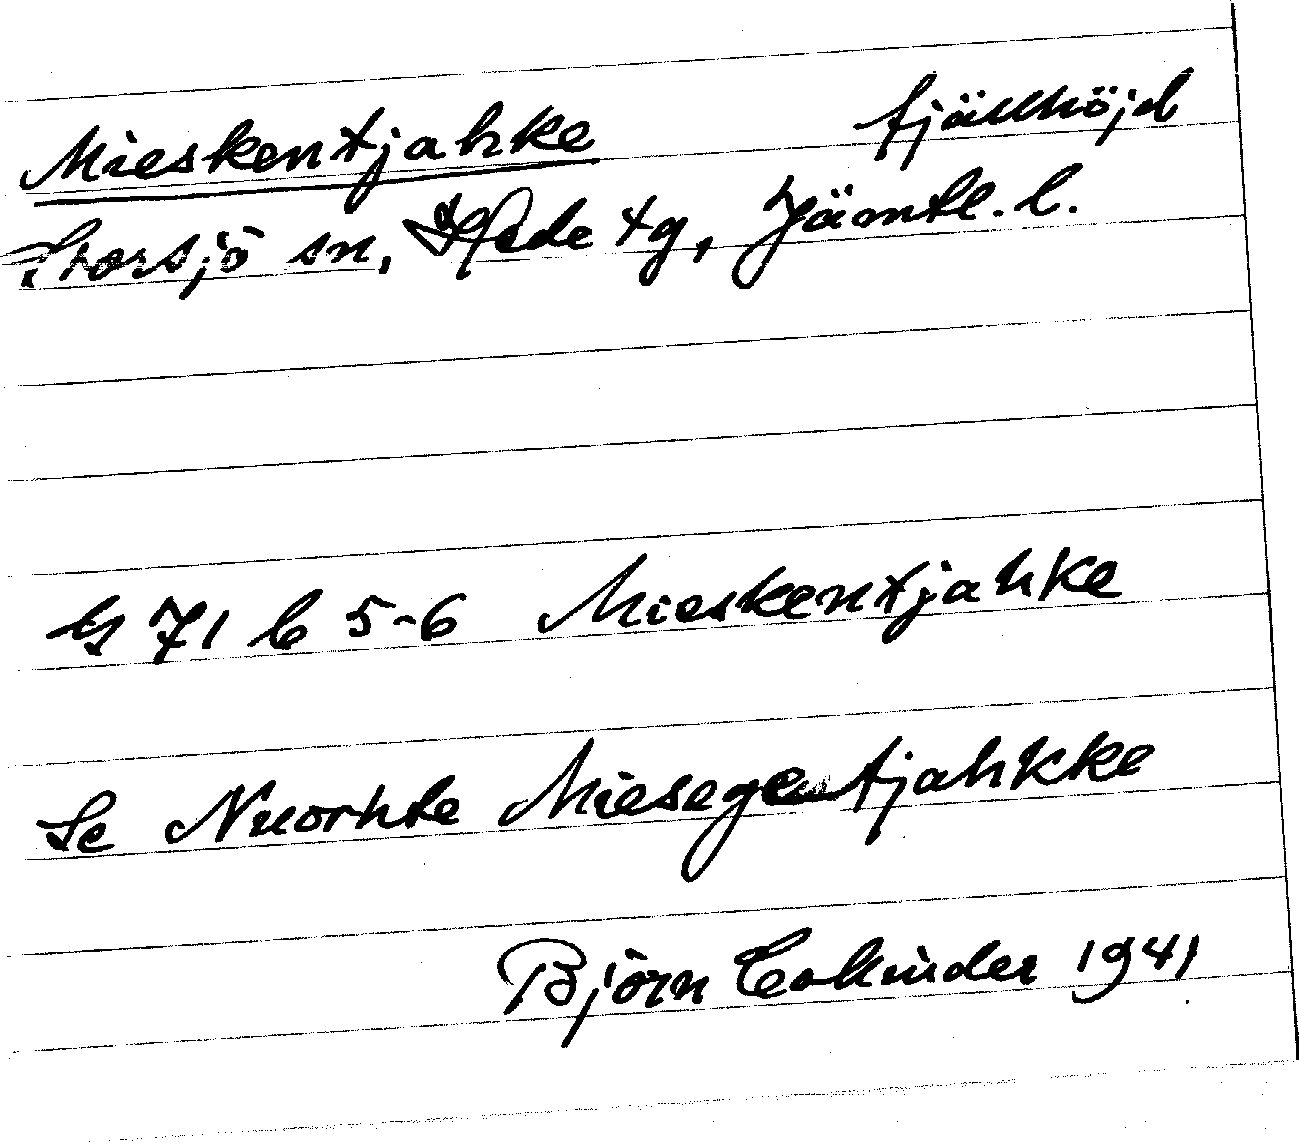 Mieskentjahke fjällhöjd
Storsjö sn, Hede tg, Jämtl. l.
G 71 b 5-6 Mieskentjahke
Se Nuorhte Miesegentjahkke
Björn Collinder 1941